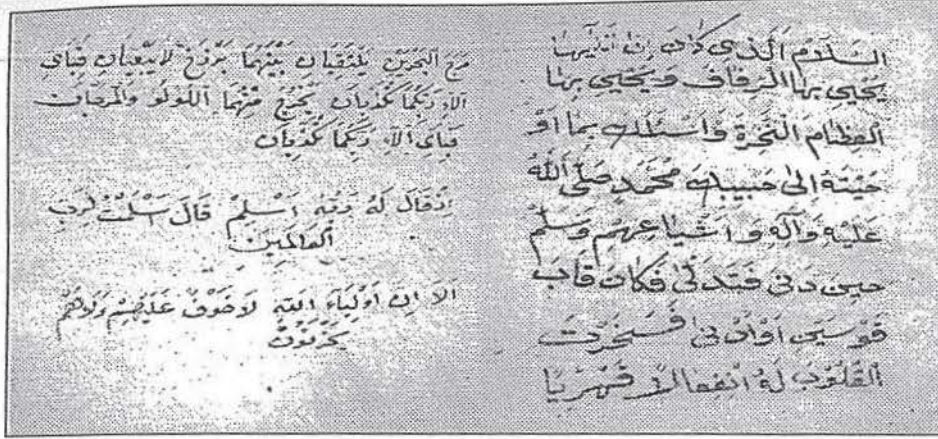 السلام الذي كان إن
يحيى بها الرفاف ويحيي بها
العظام النخرة واسئلك بما او
حيته إلى حبيبك محمد صلى الله
عليه وآله واشياعهم وسلم
حين دنى فتدلى فكان قاب
قوسين او ادنى فسخرت
القلوب له انفعالا قهريا
مرج البحرين يلتقيان بينهما برزخ لا يبغيان فباي
الاء ربكما تكذبان يخرج منهما اللولو والمرجان
فباى الاء ربكما تكذبان
اذ قال له ربه اسلم قال اسلمت لرب
العالمين
الا ان اولياء الله لا خوف عليهم ولا هم
يحزنون